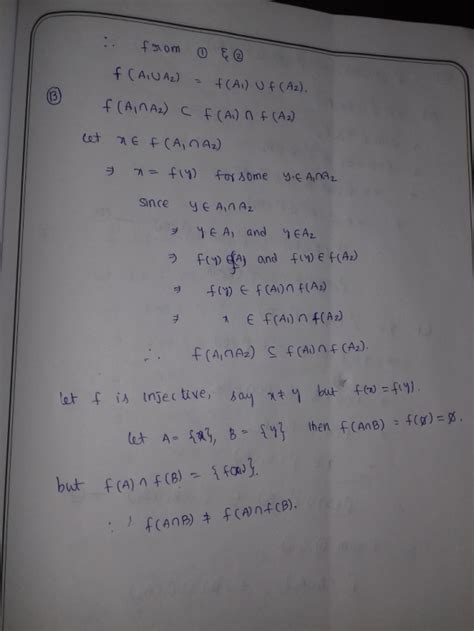 ∴ from ① & ②
f(A₁∪A₂) = f(A₁) ∪ f(A₂).
⑬ f(A₁∩A₂) ⊂ f(A₁) ∩ f(A₂)
let x ∈ f(A₁∩A₂)
⇒ x = f(y) for some y ∈ A₁∩A₂
since y ∈ A₁∩A₂
⇒ y ∈ A₁ and y ∈ A₂
⇒ f(y) ∈ f(A₁) and f(y) ∈ f(A₂)
⇒ f(y) ∈ f(A₁) ∩ f(A₂)
⇒ x ∈ f(A₁) ∩ f(A₂)
∴ f(A₁∩A₂) ⊆ f(A₁) ∩ f(A₂).
let f is injective, say x ≠ y but f(x) = f(y).
let A = {x}, B = {y} then f(A∩B) = f(∅) = ∅.
but f(A) ∩ f(B) = {f(x)}.
∴ f(A∩B) ≠ f(A) ∩ f(B).